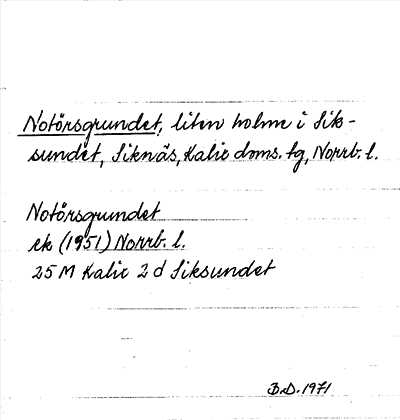 Notörsgrundet, liten holme i Sik-
sundet, Siknäs, Kalix doms. tg, Norrb. l.
Notörsgrundet
ek (1951) Norrb. l.
25 M Kalix 2 d Siksundet
B.D. 1971